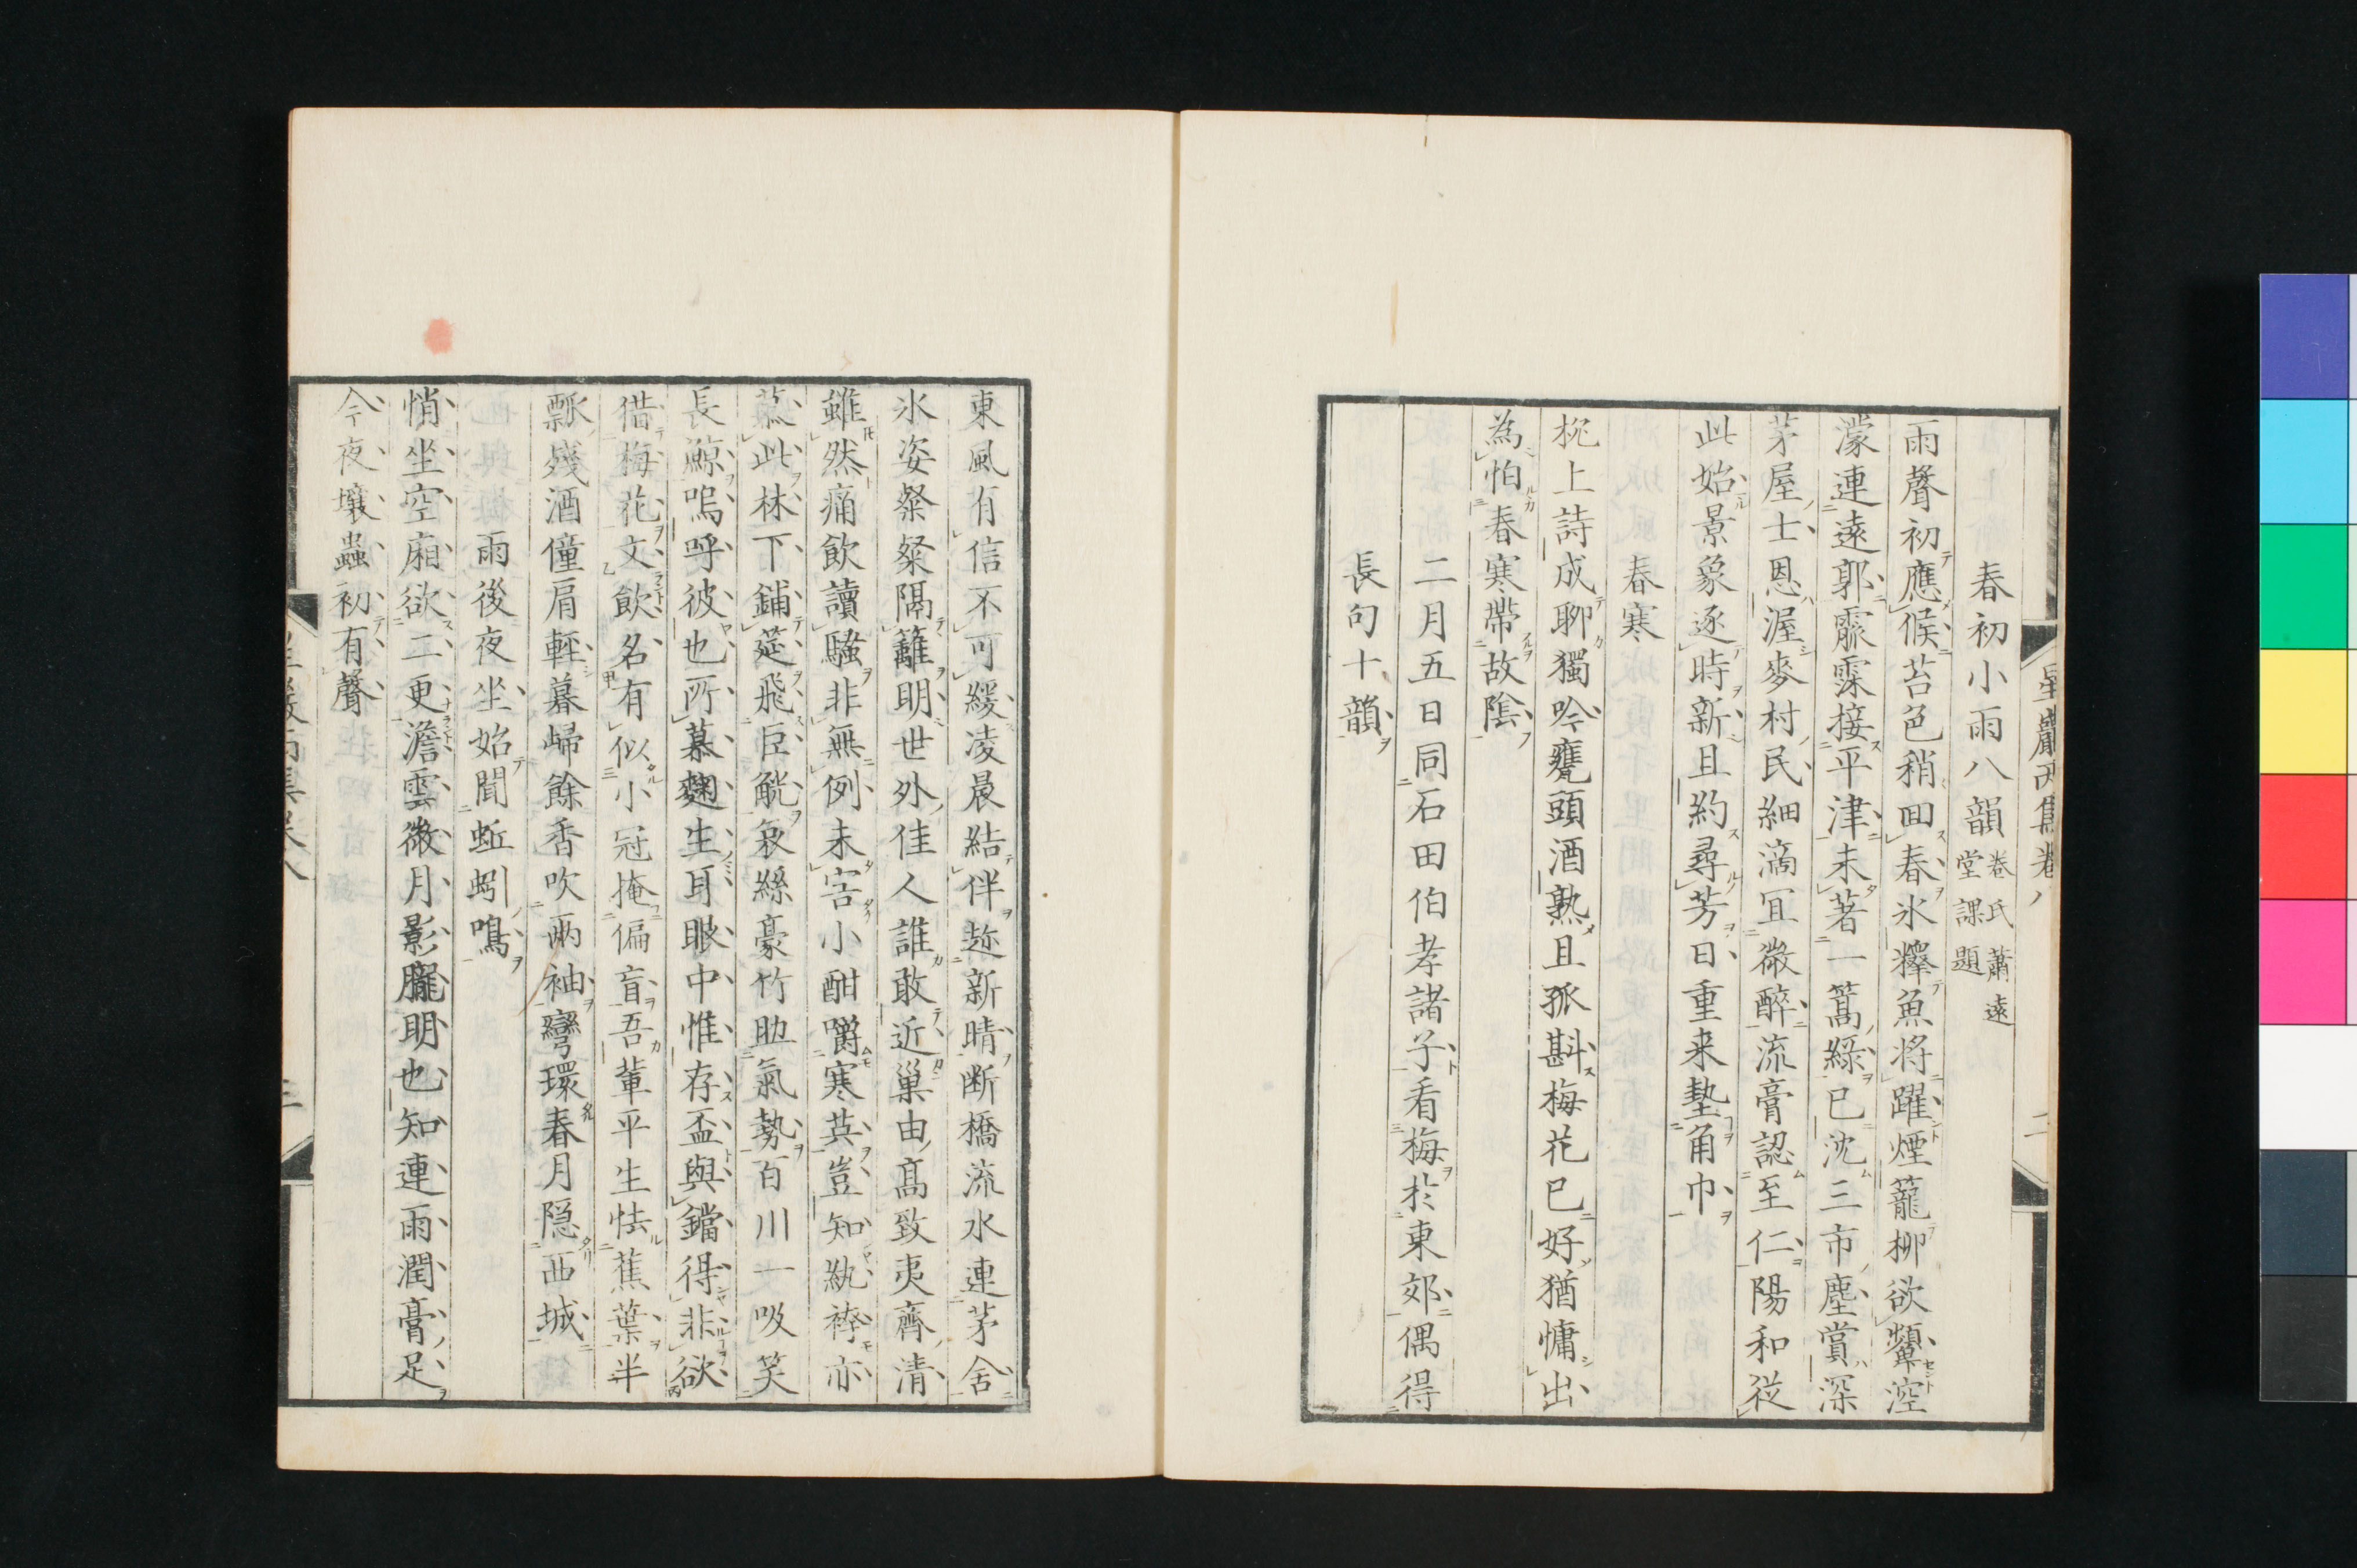 星巖丙集卷八
二
春初小雨八韻 卷氏蕭遠堂課題
雨聲初應候苔色稍回春氷獰魚將躍煙蘢柳欲顰涳
濛連遠郭霢霂接平津未著一篙綠已沈三市塵賞深
茅屋士恩渥麥村民細滴宜微醉流膏認至仁陽和從
此始景象逐時新且約尋芳日重来墊角巾
春寒
枕上詩成聊獨吟甕頭酒熟且孤斟梅花已好猶慵出
為怕春寒帶故陰
二月五日同石田伯孝諸子看梅於東郊偶得
長句十韻
東風有信不可緩凌晨結伴趂新晴断橋流水連茅舍
氷姿粲粲隔籬明世外佳人誰敢近巢由高致夷齊清
雖然痛飲讀騷非無例未害小酣嚼寒英豈知紈袴亦
慕此林下鋪莚飛巨觥哀絲豪竹助氣勢百川一吸笑
長鯨嗚呼彼也所慕麹生耳眼中惟存盃與鐺得非欲
借梅花文飲名有似小冠掩偏盲吾輩平生怯蕉葉半
瓢殘酒僮肩輕暮歸餘香吹兩袖彎環春月隱西城
雨後夜坐始聞蚯蚓鳴
悄坐空廂欲二更澹雲微月影朧明也知連雨潤膏足
今夜壤蟲初有聲
三